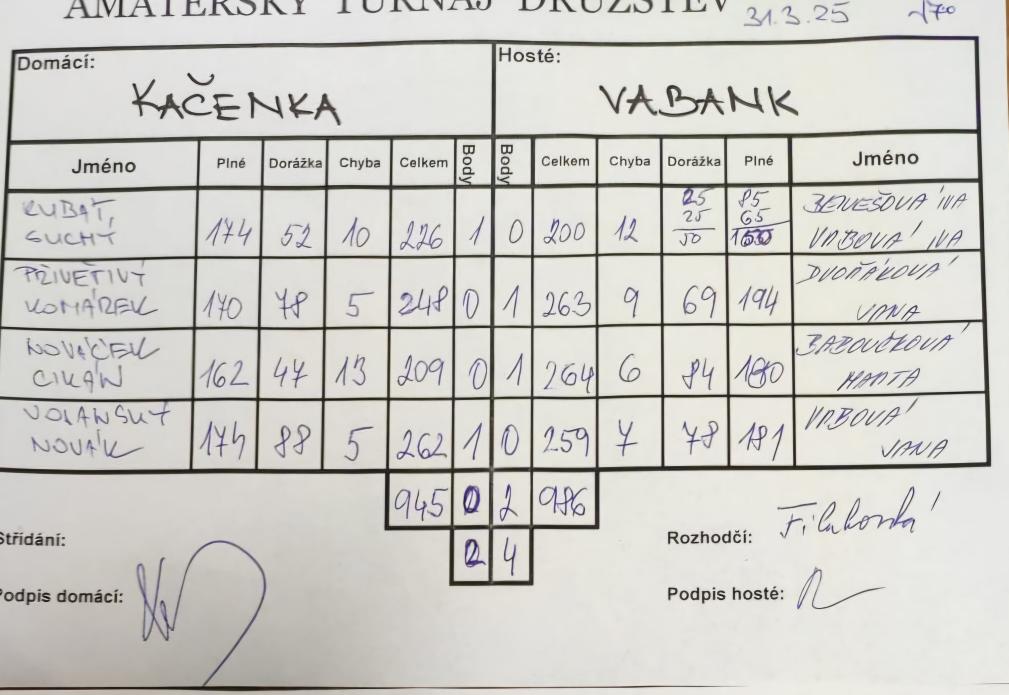 AMATÉRSKÝ TURNAJ DRUŽSTEV 31.3.25 1700
Domácí: Hosté:
KAČENKA VABANK
Jméno Plné Dorážka Chyba Celkem Body Body Celkem Chyba Dorážka Plné Jméno
KUBÁT, 25 85 BENEŠOVÁ IVA
SUCHÝ 174 52 10 226 1 0 200 12 25 65 VRBOVÁ IVA
50 150
PŘÍVĚTIVÝ DVOŘÁKOVÁ
KOMÁREK 170 78 5 248 0 1 263 9 69 194 JANA
NOVÁČEK BABOUČKOVÁ
CIKÁN 162 47 13 209 0 1 264 6 84 180 MARTA
VOLANSKÝ VRBOVÁ
NOVÁK 174 88 5 262 1 0 259 7 78 181 JANA
945 0 2 986
2 4
Střídání: Rozhodčí:
Podpis domácí: Podpis hosté: